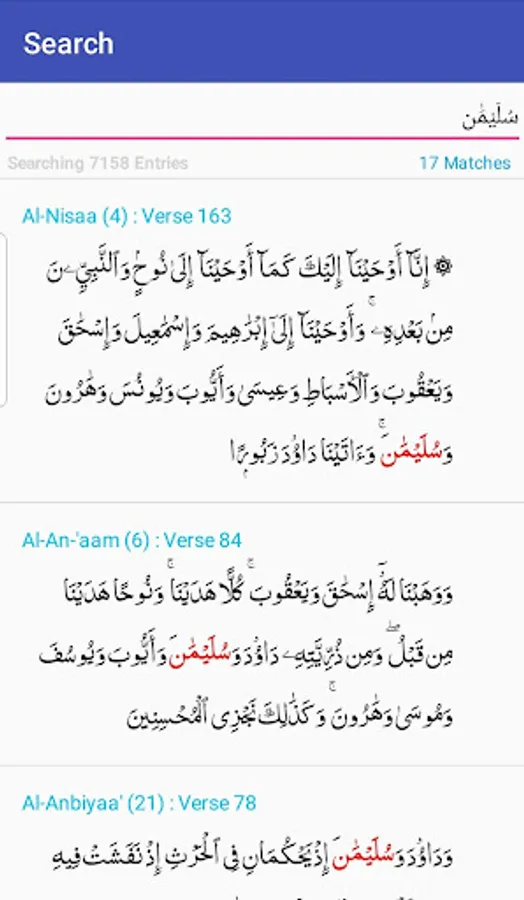 Search
سُلَيۡمَٰن
Searching 7158 Entries
17 Matches
Al-Nisaa (4) : Verse 163
۞ إِنَّآ أَوۡحَيۡنَآ إِلَيۡكَ كَمَآ أَوۡحَيۡنَآ إِلَىٰ نُوحٖ وَٱلنَّبِيِّـۧنَ
مِنۢ بَعۡدِهِۦۚ وَأَوۡحَيۡنَآ إِلَىٰٓ إِبۡرَٰهِيمَ وَإِسۡمَٰعِيلَ وَإِسۡحَٰقَ
وَيَعۡقُوبَ وَٱلۡأَسۡبَاطِ وَعِيسَىٰ وَأَيُّوبَ وَيُونُسَ وَهَٰرُونَ
وَسُلَيۡمَٰنَۚ وَءَاتَيۡنَا دَاوُۥدَ زَبُورٗا
Al-An-'aam (6) : Verse 84
وَوَهَبۡنَا لَهُۥٓ إِسۡحَٰقَ وَيَعۡقُوبَۚ كُلًّا هَدَيۡنَاۚ وَنُوحًا هَدَيۡنَا
مِن قَبۡلُۖ وَمِن ذُرِّيَّتِهِۦ دَاوُۥدَ وَسُلَيۡمَٰنَ وَأَيُّوبَ وَيُوسُفَ
وَمُوسَىٰ وَهَٰرُونَۚ وَكَذَٰلِكَ نَجۡزِي ٱلۡمُحۡسِنِينَ
Al-Anbiyaa' (21) : Verse 78
وَدَاوُۥدَ وَسُلَيۡمَٰنَ إِذۡ يَحۡكُمَانِ فِي ٱلۡحَرۡثِ إِذۡ نَفَشَتۡ فِيهِ